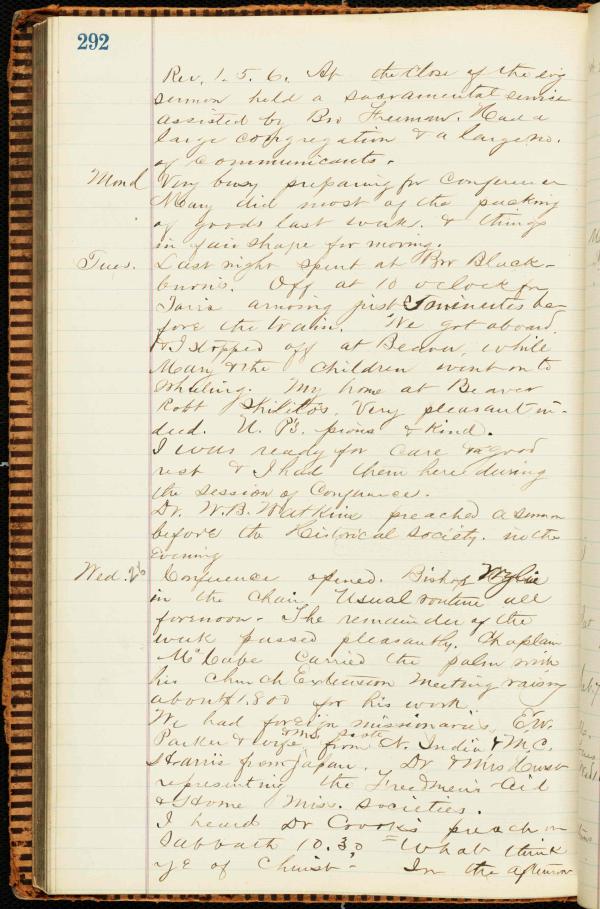 292
Rev. 1. 5. 6. At the close of the evg
sermon held a sacramental service
assisted by Bro Freeman. Had a
large congregation & a large no.
of communicants.
Mond Very busy preparing for Conference
Mary did most of the packing
of goods last week. & things
in fair shape for moving.
Tues. Last night spent at Bro Black-
Off at 10 oclock for
arriving just 5 minutes be-
fore the train. We got aboard
& I stopped off at Beaver, while
Mary & the children went on to
Wheeling. My home at Beaver
Robt Very pleasant in-
deed. U. P's. pious & kind.
I was ready for care & good
rest & I had them here during
the session of Conference.
Dr. W. B. Watkins preached a sermon
before the Historical Society. in the
Evening
Wed. 26 Conference opened. Bishop Wylie
in the chair. Usual routine all
forenoon. The remainder of the
week passed pleasantly. Chaplain
McCabe carried the palm with
his Church Extension Meeting raising
about $1.800 for his work
We had foreign missionaries, E.W.
Parker & wife & Mrs. from N. India & M.C.
Harris from Japan. Dr & Mrs
representing the Freedmens Aid
& Home Miss. Societies.
I heard Dr Crooks preach on
Sabbath 10.30 "What think
ye of Christ" In the afternoon